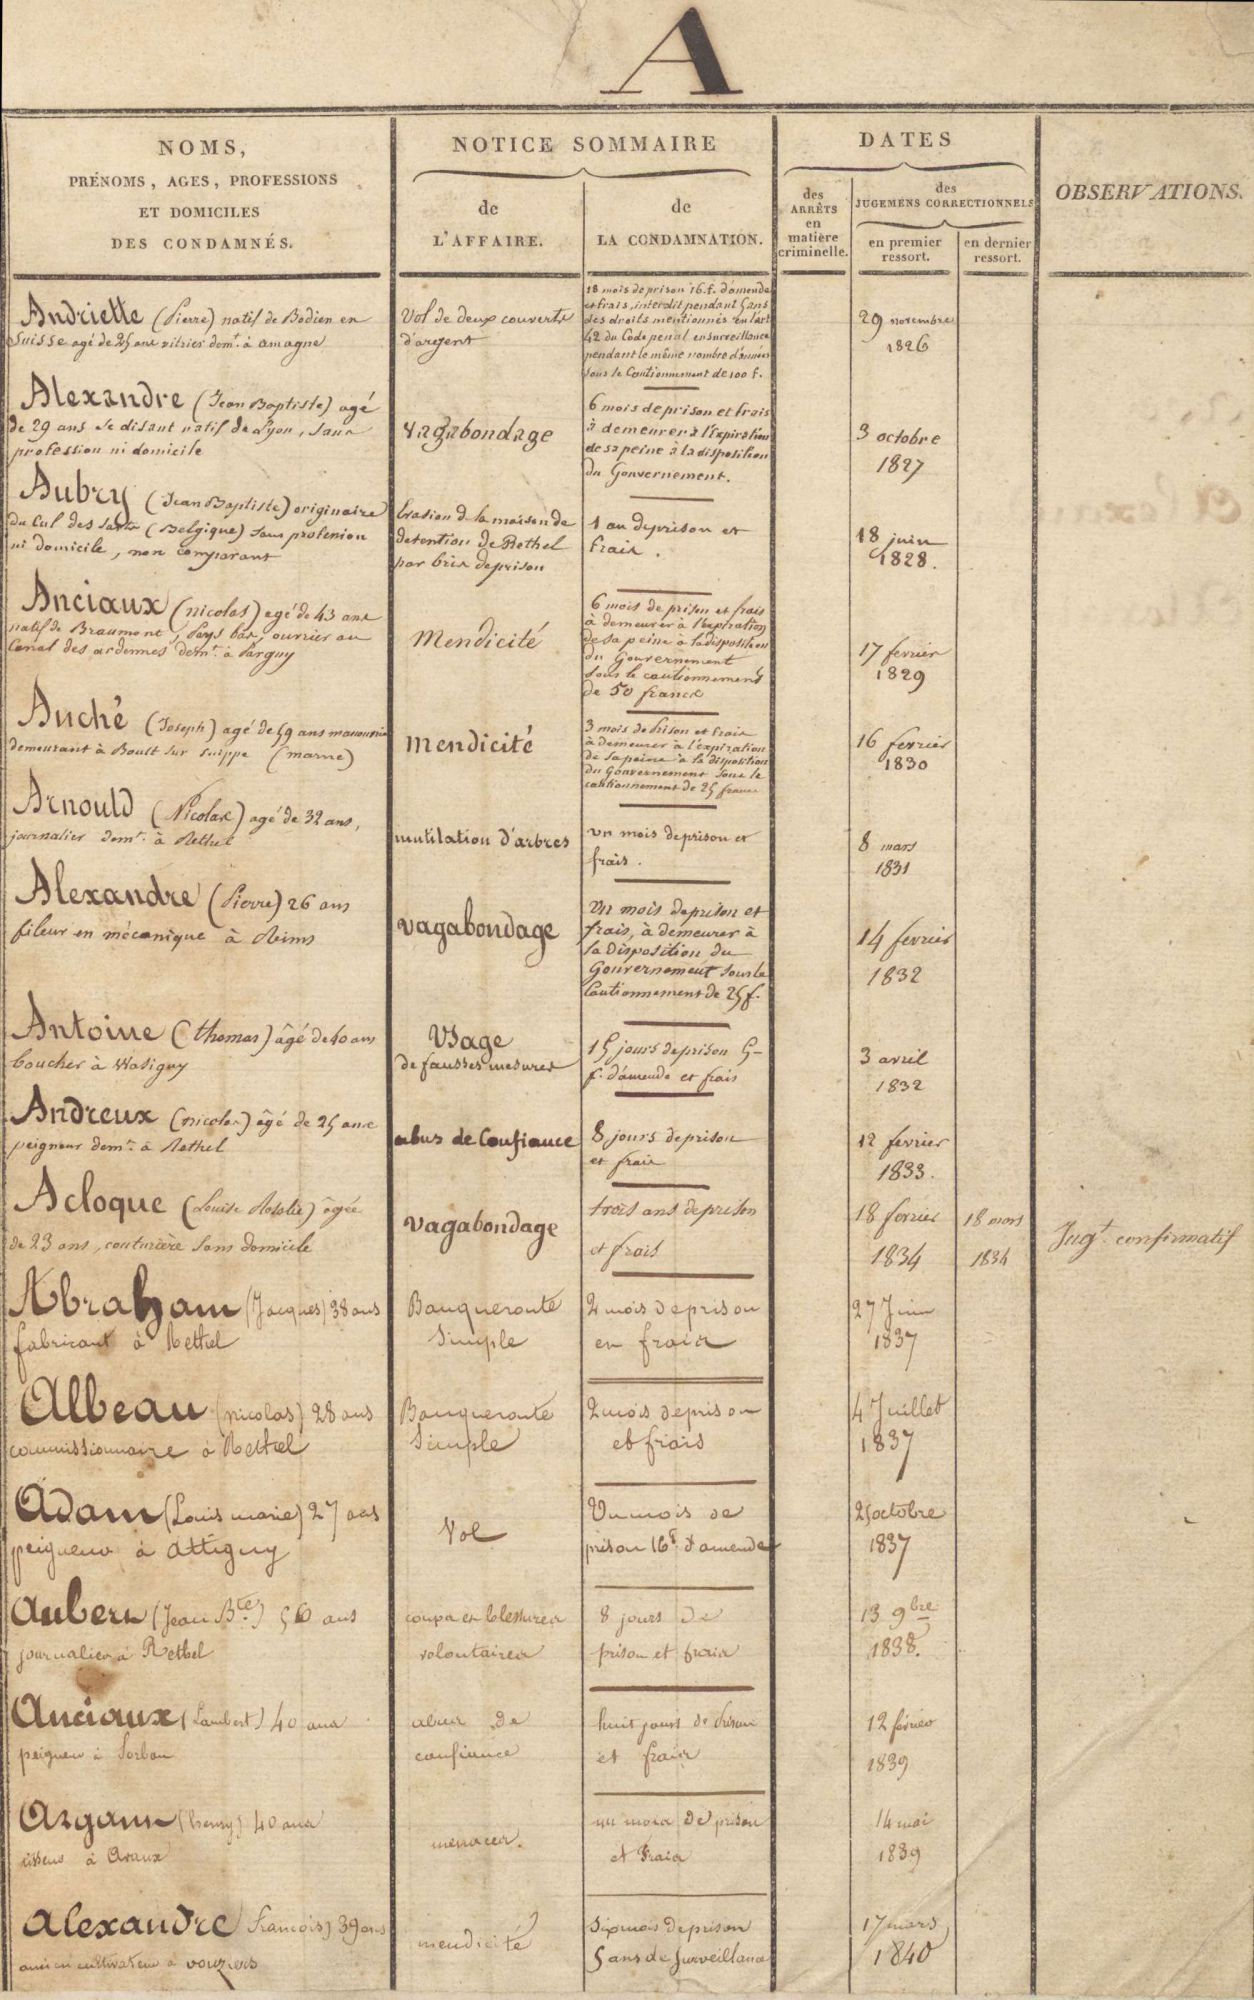 A
NOMS,
PRÉNOMS, AGES, PROFESSIONS
ET DOMICILES
DES CONDAMNÉS.
NOTICE SOMMAIRE
de
L'AFFAIRE.
de
LA CONDAMNATION.
DATES
des
ARRÊTS
en
matière
criminelle.
des
JUGEMENS CORRECTIONNELS
en premier
ressort.
en dernier
ressort.
OBSERVATIONS.
Andriette (Pierre) natif de Bodien en
Suisse agé de 25 ans vitrier demt. à amagne
Vol de deux couverts
d'argent
18 mois de prison 16.f. d'amende
et frais, interdit pendant 5 ans
des droits mentionnés en l'art
42 du Code penal en surveillance
pendant le même nombre d'années
sous le Cautionnement de 100 f.
29 novembre
1826
Alexandre (Jean Baptiste) agé
de 29 ans se disant natif de Lyon, sans
profession ni domicile
vagabondage
6 mois de prison et frais
à demeurer à l'expiration
de sa peine à la disposition
du Gouvernement.
3 octobre
1827
Aubry (Jean Baptiste) originaire
du Cul des Sarts (Belgique) sans profession
ni domicile, non comparant
Evasion de la maison de
detention de Rethel
par bris de prison
1 an de prison et
frais.
18 juin
1828.
Anciaux (nicolas) agé de 43 ans
natif de Braumont, Pays bas, ouvrier au
Canal des ardennes demt. à Parguy
Mendicité
6 mois de prison et frais
à demeurer à l'expiration
de sa peine à la disposition
du Gouvernement
sous le cautionnement
de 50 francs
17 fevrier
1829
Auché (Joseph) agé de 59 ans manouvrier
demeurant à Boult sur suippe (marne)
mendicité
3 mois de Prison et frais
à demeurer à l'expiration
de sa peine à la disposition
du Gouvernement sous le
cautionnement de 25 francs
16 fevrier
1830
Arnould (Nicolas) agé de 32 ans,
journalier demt. à Rethel
mutilation d'arbres
un mois de prison et
frais.
8 mars
1831
Alexandre (Pierre) 26 ans
fileur en mécanique à Reims
vagabondage
un mois de prison et
frais, à demeurer à
la disposition du
Gouvernement sous le
Cautionnement de 25 f.
14 fevrier
1832
Antoine (thomas) âgé de 40 ans
boucher à Wasigny
Usage
de fausses mesures
15 jours de prison 5-
f. d'amende et frais
3 avril
1832
Andreux (nicolas) âgé de 25 ans
peigneur demt. à Rethel
abus de Confiance
8 jours de prison
et frais
12 fevrier
1833.
Acloque (Louise Rosalie) âgée
de 23 ans, couturière sans domicile
vagabondage
trois ans de prison
et frais
18 fevrier
1834
18 mars
1834
Jugt. confirmatif
Abraham (Jacques) 38 ans
fabricant à Rethel
Banqueroute
Simple
2 mois de prison
en frais
27 Juin
1837
Albeau (nicolas) 28 ans
commissionnaire à Rethel
Banqueroute
Simple
2 mois de prison
et frais
4 Juillet
1837
Adam (Louis marie) 27 ans
peigneur à Attigny
Vol
Un mois de
prison 16f d'amende
25 octobre
1837
Aubert (Jean Bte.) 56 ans
journalier à Rethel
coups et blessures
volontaires
8 jours de
prison et frais
13 9bre
1838.
Anciaux (Lambert) 40 ans
peigneur à Sorbon
abus de
confiance
huit jours de Prison
et frais
12 février
1839
(henry) 40 ans
tisseur à
menaces.
un mois de prison
et frais
14 mai
1839
Alexandre François) 39 ans
ancien cultivateur à vouziers
mendicité
Six mois de prison
5 ans de Surveillance
17 mars
1840